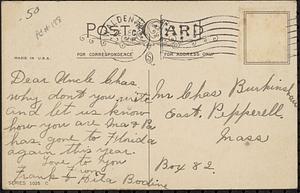 .50
POST CARD
FOR CORRESPONDENCE
FOR ADDRESS
MADE IN U.S.A.
Dear Uncle Chas
why don't you write
and let us know
how you are Ma & Pa
has gone to Florida
again this year.
Love to you
from
Frank & Hila Bodine
Mr Chas Burkinshaw
East. Pepperell,
Mass
Box 82.
SERIES 1025 C